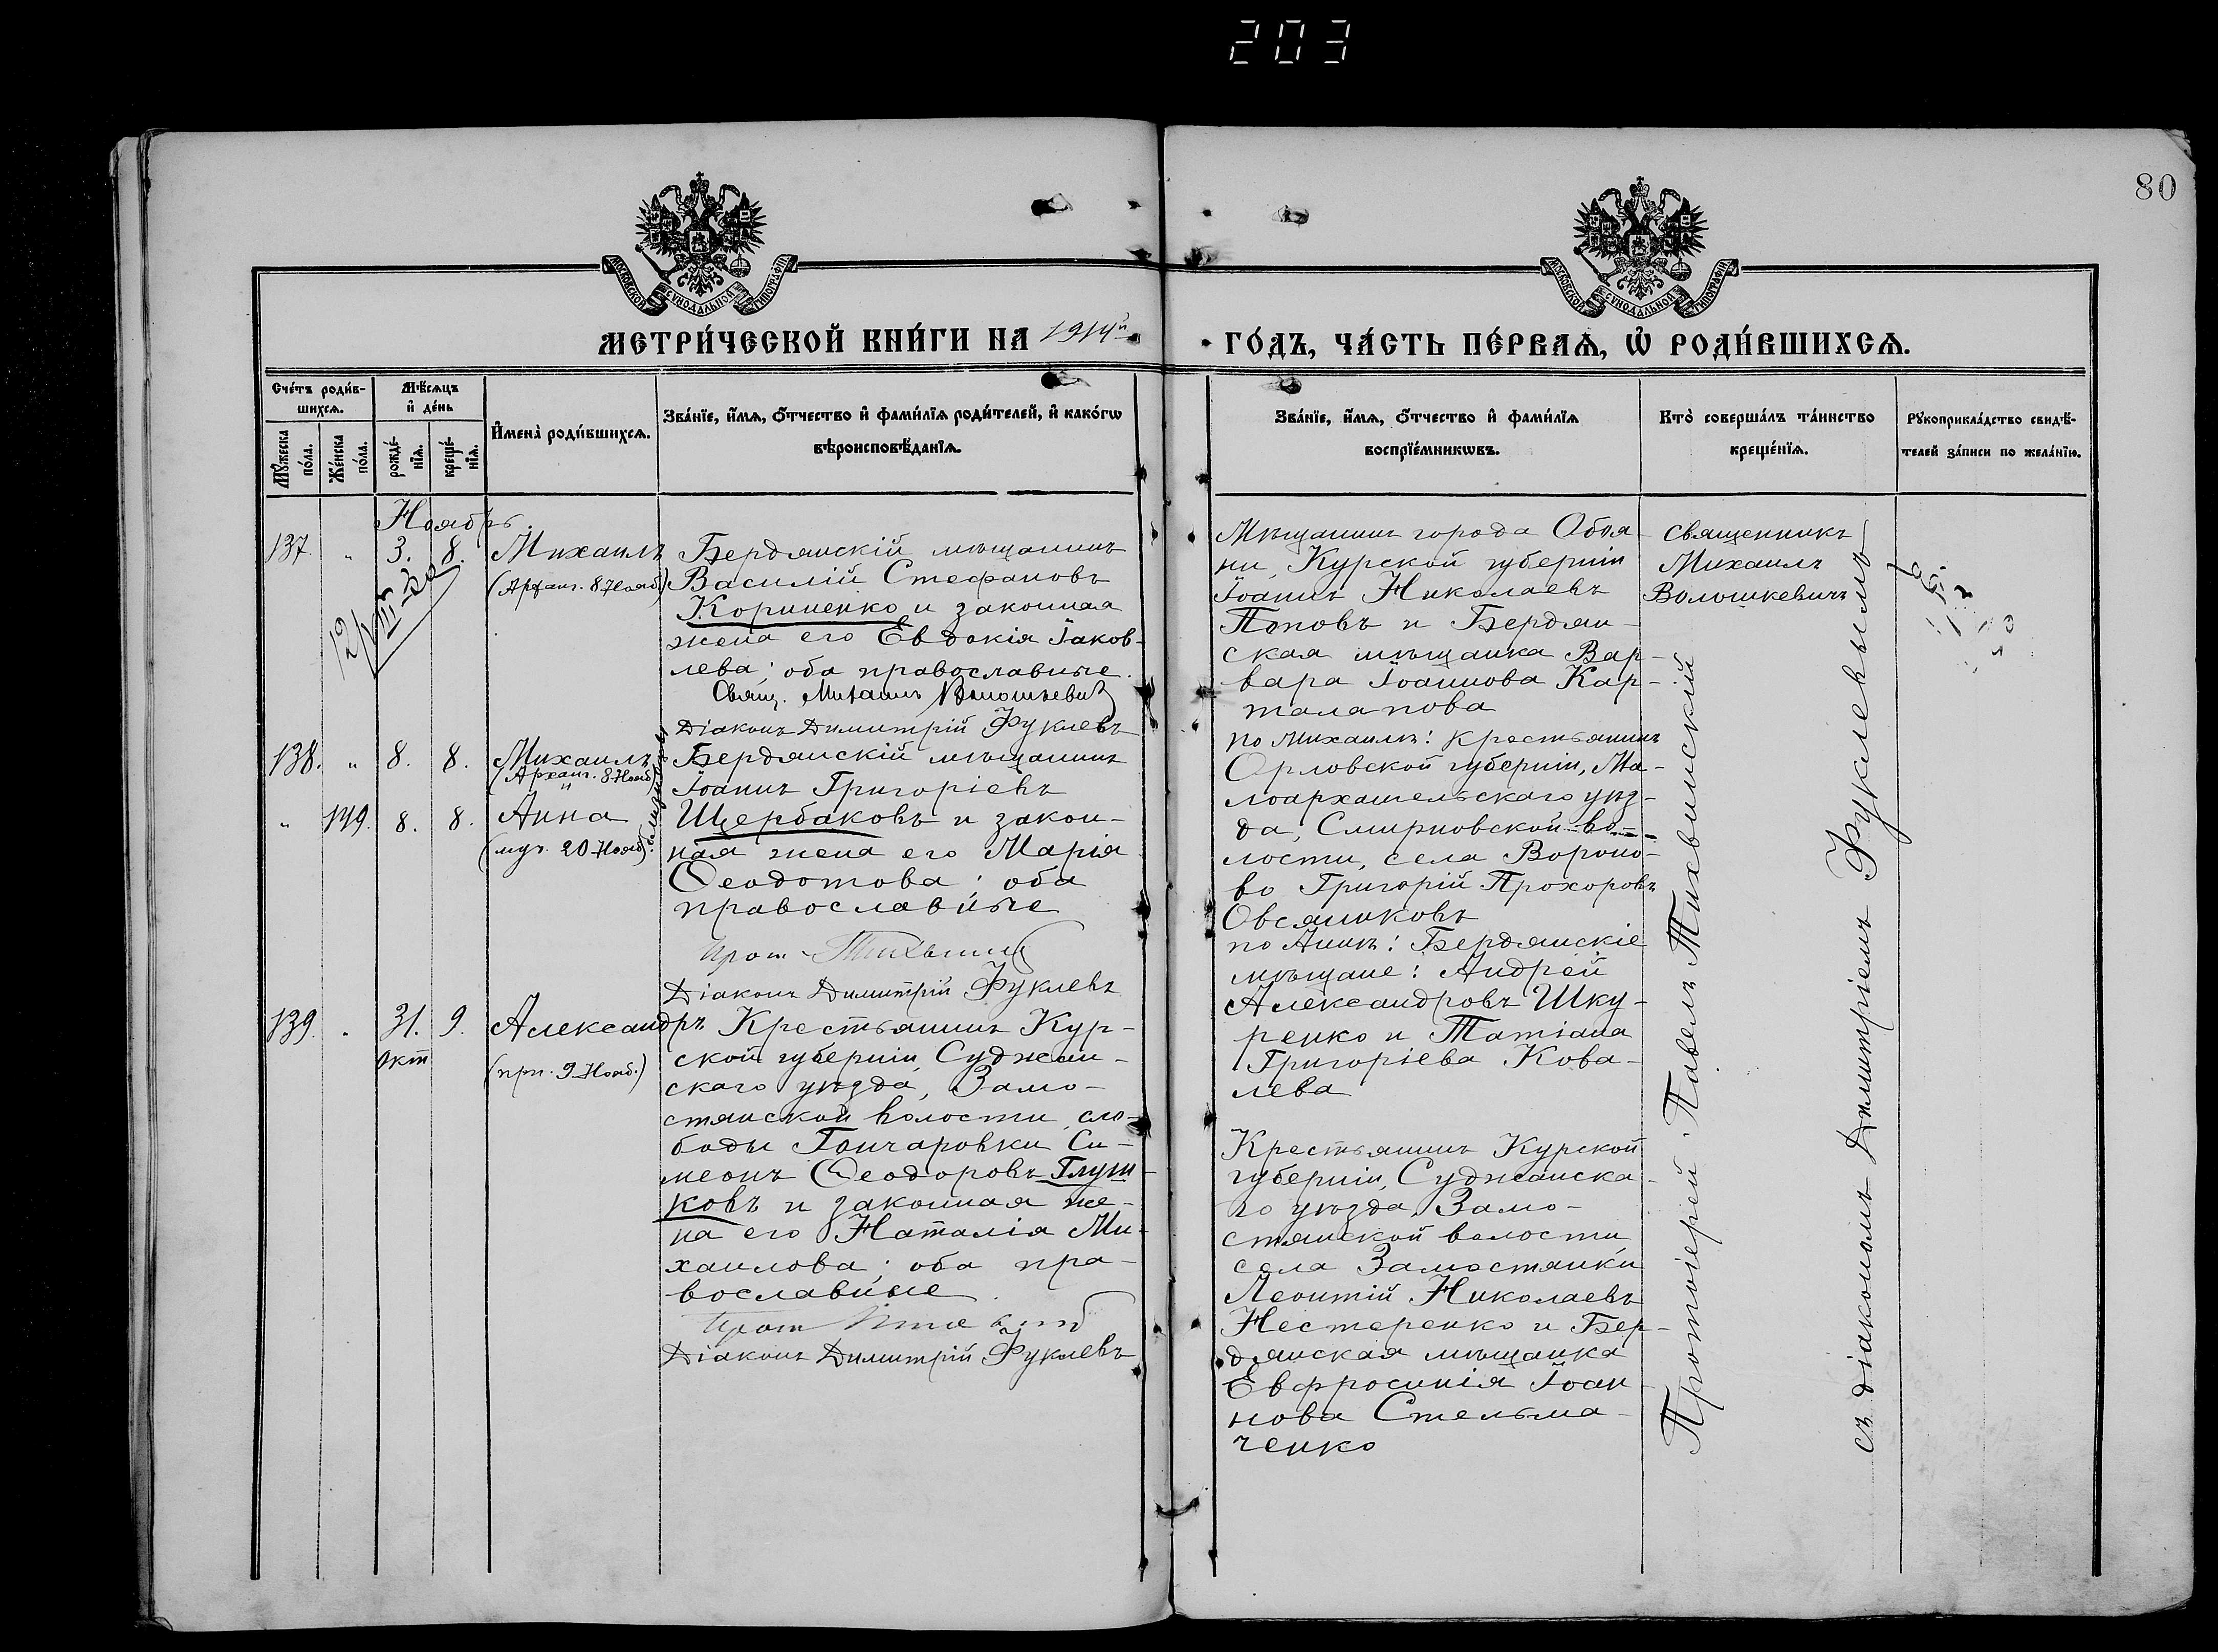 203
80
МОСКОВСКОЙ СѴНОДАЛЬНОЙ ТИПОГРАФІИ
МОСКОВСКОЙ СѴНОДАЛЬНОЙ ТИПОГРАФІИ
МЕТРИ́ЧЕСКОЙ КНИ́ГИ НА 1914й
ГО́ДЪ, ЧА́СТЬ ПЕ́РВАѦ, Ѡ҆ РОДИ́ВШИХСѦ.
Сче́тъ роди́в-
шихсѧ.
Мꙋ́жеска
по́ла.
Же́нска
по́ла.
Мѣ́сѧцъ
и҆ де́нь
рожде́-
нїѧ.
креще́-
нїѧ.
И҆мена̀ роди́вшихсѧ.
Зва́нїе, и҆́мѧ, ѻ҆́тчество и҆ фами́лїѧ роди́телей, и҆ како́гѡ
вѣроисповѣ́данїѧ.
Зва́нїе, и҆́мѧ, ѻ҆́тчество и҆ фами́лїѧ
воспрїе́мникѡвъ.
Кто̀ соверша́лъ та́инство
креще́нїѧ.
Рꙋкоприкла́дство свидѣ́-
телей за́писи по жела́нїю.
Ноябрь.
137. " 3. 8. Михаилъ
(Арханг. 8 Нояб.)
Бердянскій мѣщанинъ
Василій Стефановъ
Кориненко и законная
жена его Евдокія Іаков-
лева; оба православные.
Свящ. Михаилъ Волошкевичъ
Діаконъ Димитрій Фуклевъ
Мѣщанинъ города Обоя-
ни, Курской губерніи
Іоаннъ Николаевъ
Поповъ и Бердян-
ская мѣщанка Вар-
вара Іоаннова Кар-
талапова
Священникъ
Михаилъ
Волошкевичъ
138. " 8. 8. Михаилъ
(Арханг. 8 Нояб.)
и
" 149. 8. 8. Анна
(муч. 20 Нояб.)
близнецы
Бердянскій мѣщанинъ
Іоаннъ Григоріевъ
Щербаковъ и закон-
ная жена его Марія
Ѳеодотова; оба
православные
Діаконъ Димитрій Фуклевъ
по Михаилѣ: крестьянинъ
Орловской губерніи, Ма-
лоархангельскаго уѣз-
да, Смирновской во-
лости, села Вороно-
во Григорій Прохоровъ
Овсянниковъ
по Аннѣ: Бердянскіе
мѣщане: Андрей
Александровъ Шку-
ренко и Татіана
Григоріева Кова-
лева
139. " 31. 9. Александръ
Окт
(прп. 9 Нояб.)
Крестьянинъ Кур-
ской губерніи, Суджан-
скаго уѣзда, Замо-
стянской волости, сло-
боды Гончаровки Си-
меонъ Ѳеодоровъ Глуш-
ковъ и законная же-
на его Наталія Ми-
хаилова; оба пра-
вославные.
Діаконъ Димитрій Фуклевъ
Крестьянинъ Курской
губерніи, Суджанска-
го уѣзда, Замо-
стянской волости
села Замостянки
Леонтій Николаевъ
Нестеренко и Бер-
дянская мѣщанка
Евфросинія Іоан-
нова Стельма-
ченко
Протоіерей Павелъ Тихвинскій
съ діакономъ Димитріемъ Фуклевымъ